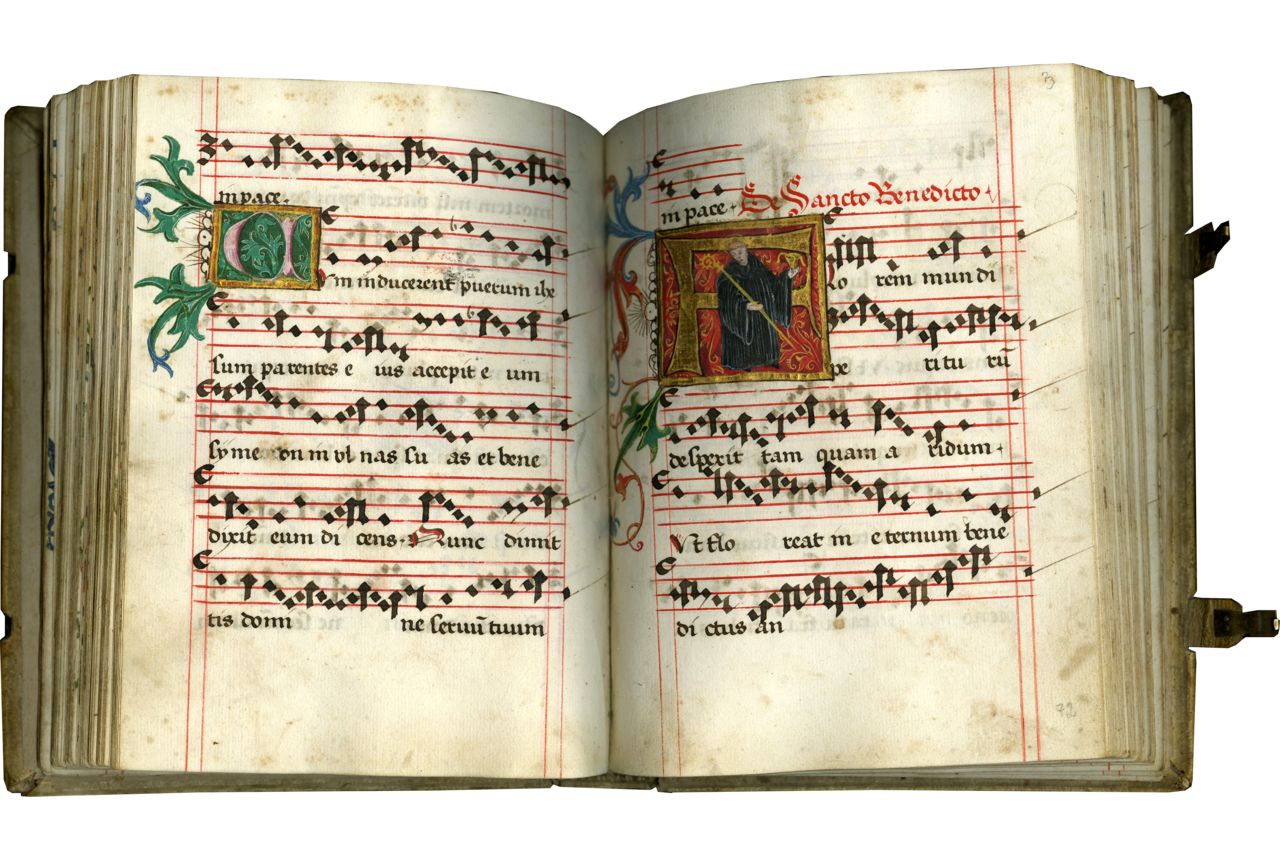 in pace ·
Cum inducerent puerum ihe
sum parentes e ius accepit e um
symeon in vlnas su as et bene
dixit eum di cens · Nunc dimit
tis domi ne seruū tuum
3
in pace · De Sancto Benedicto ·
Florem mun di
pe ritu rū
despexit tam quam a ridum ·
Vt flo reat in e ternum bene
di ctus an
72